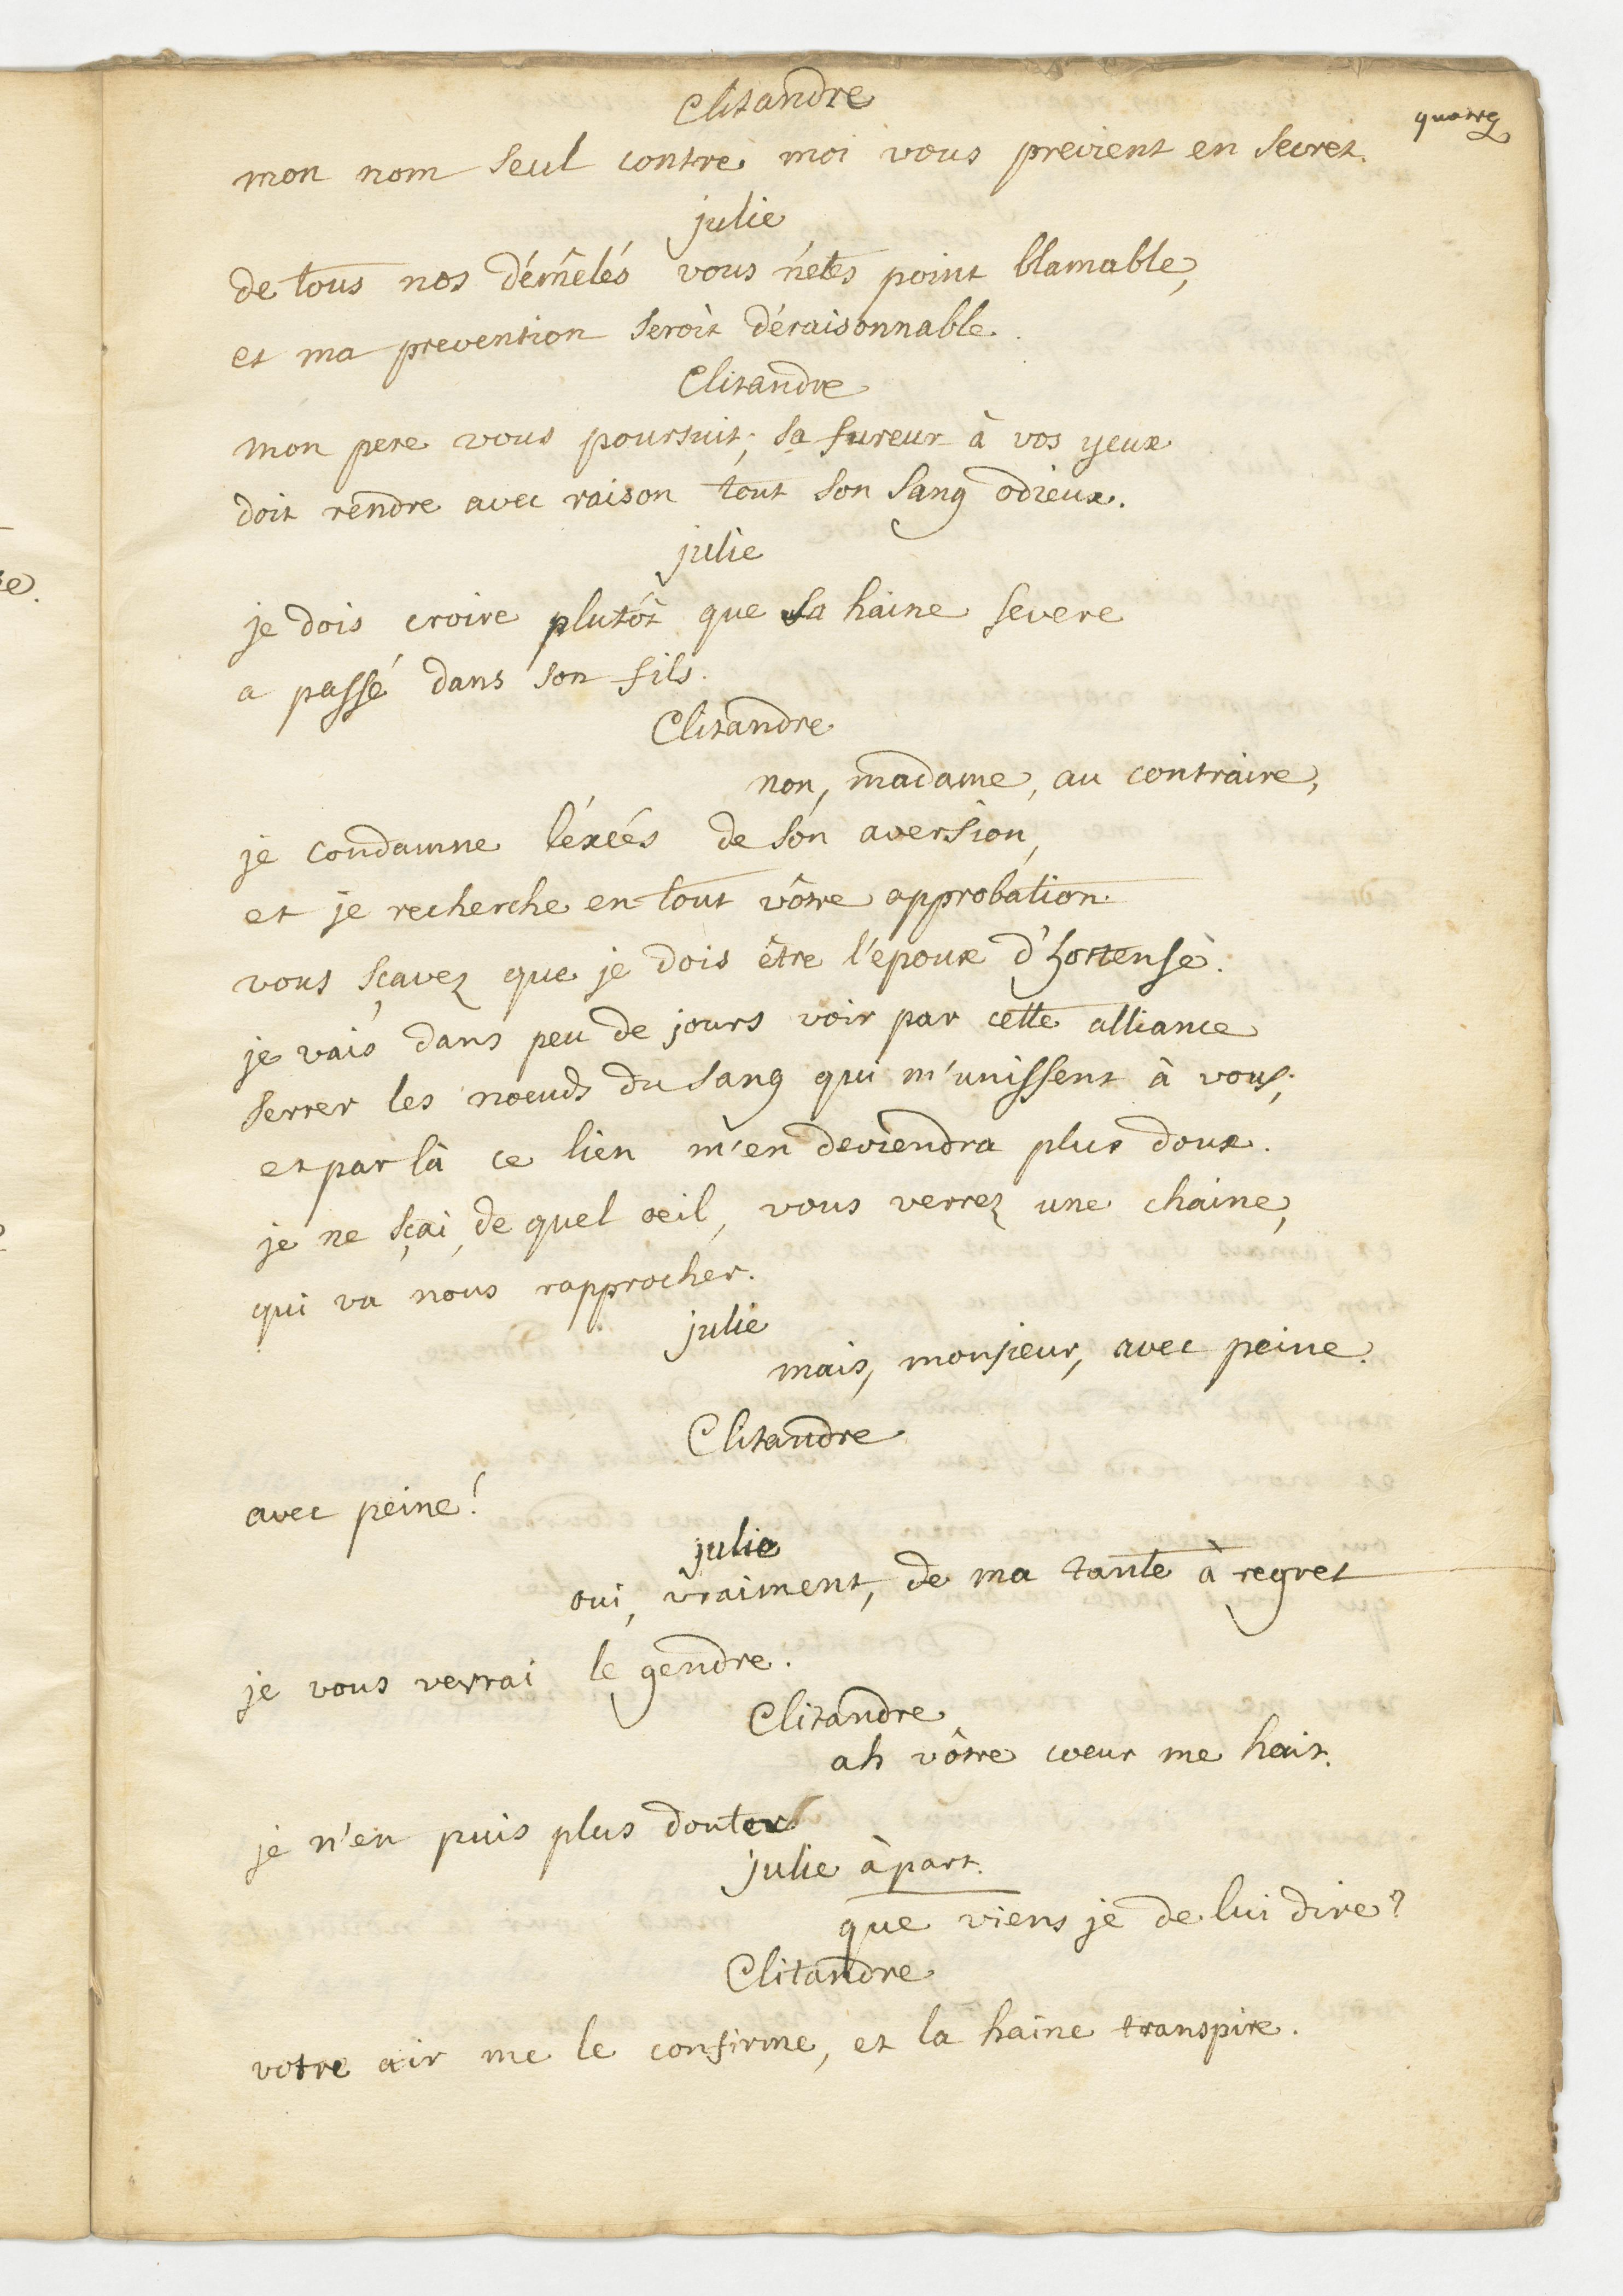 Clitandre
quatre
mon nom seul contre moi vous previent en secret.
julie
de tous nos démêlés vous n'etes point blamable,
et ma prevention seroit déraisonnable.
Clitandre
mon pere vous poursuit; sa fureur à vos yeux
doit rendre avec raison tout son sang odieux.
julie
je dois croire plutôt que sa haine severe
a passé dans son fils.
Clitandre
non, madame, au contraire,
je condamne l'éxcés de son aversion,
et je recherche en tout vôtre approbation.
vous sçavez que je dois être l'epoux d'hortense.
je vais dans peu de jours voir par cette alliance
serrer les noeuds du sang qui m'unissent à vous;
et par là ce lien m'en deviendra plus doux.
je ne sçai, de quel oeil, vous verrez une chaine,
qui va nous rapprocher.
julie
mais, monsieur, avec peine.
Clitandre
avec peine!
julie
oui, vraiment, de ma tante à regret
je vous verrai le gendre.
Clitandre
ah vôtre coeur me hait.
je n'en puis plus douter
julie à part.
que viens je de lui dire?
Clitandre
votre air me le confirme, et la haine transpire.